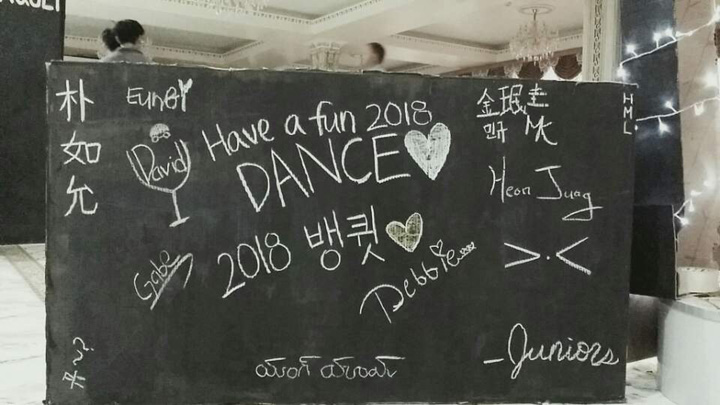 朴如允
EUnGY
David
Have a fun 2018
DANCE
金珉圭
민규 MK
HML
Heon Jung
2018 뱅큇
Gabe
Debbie
>.<
-Juniors